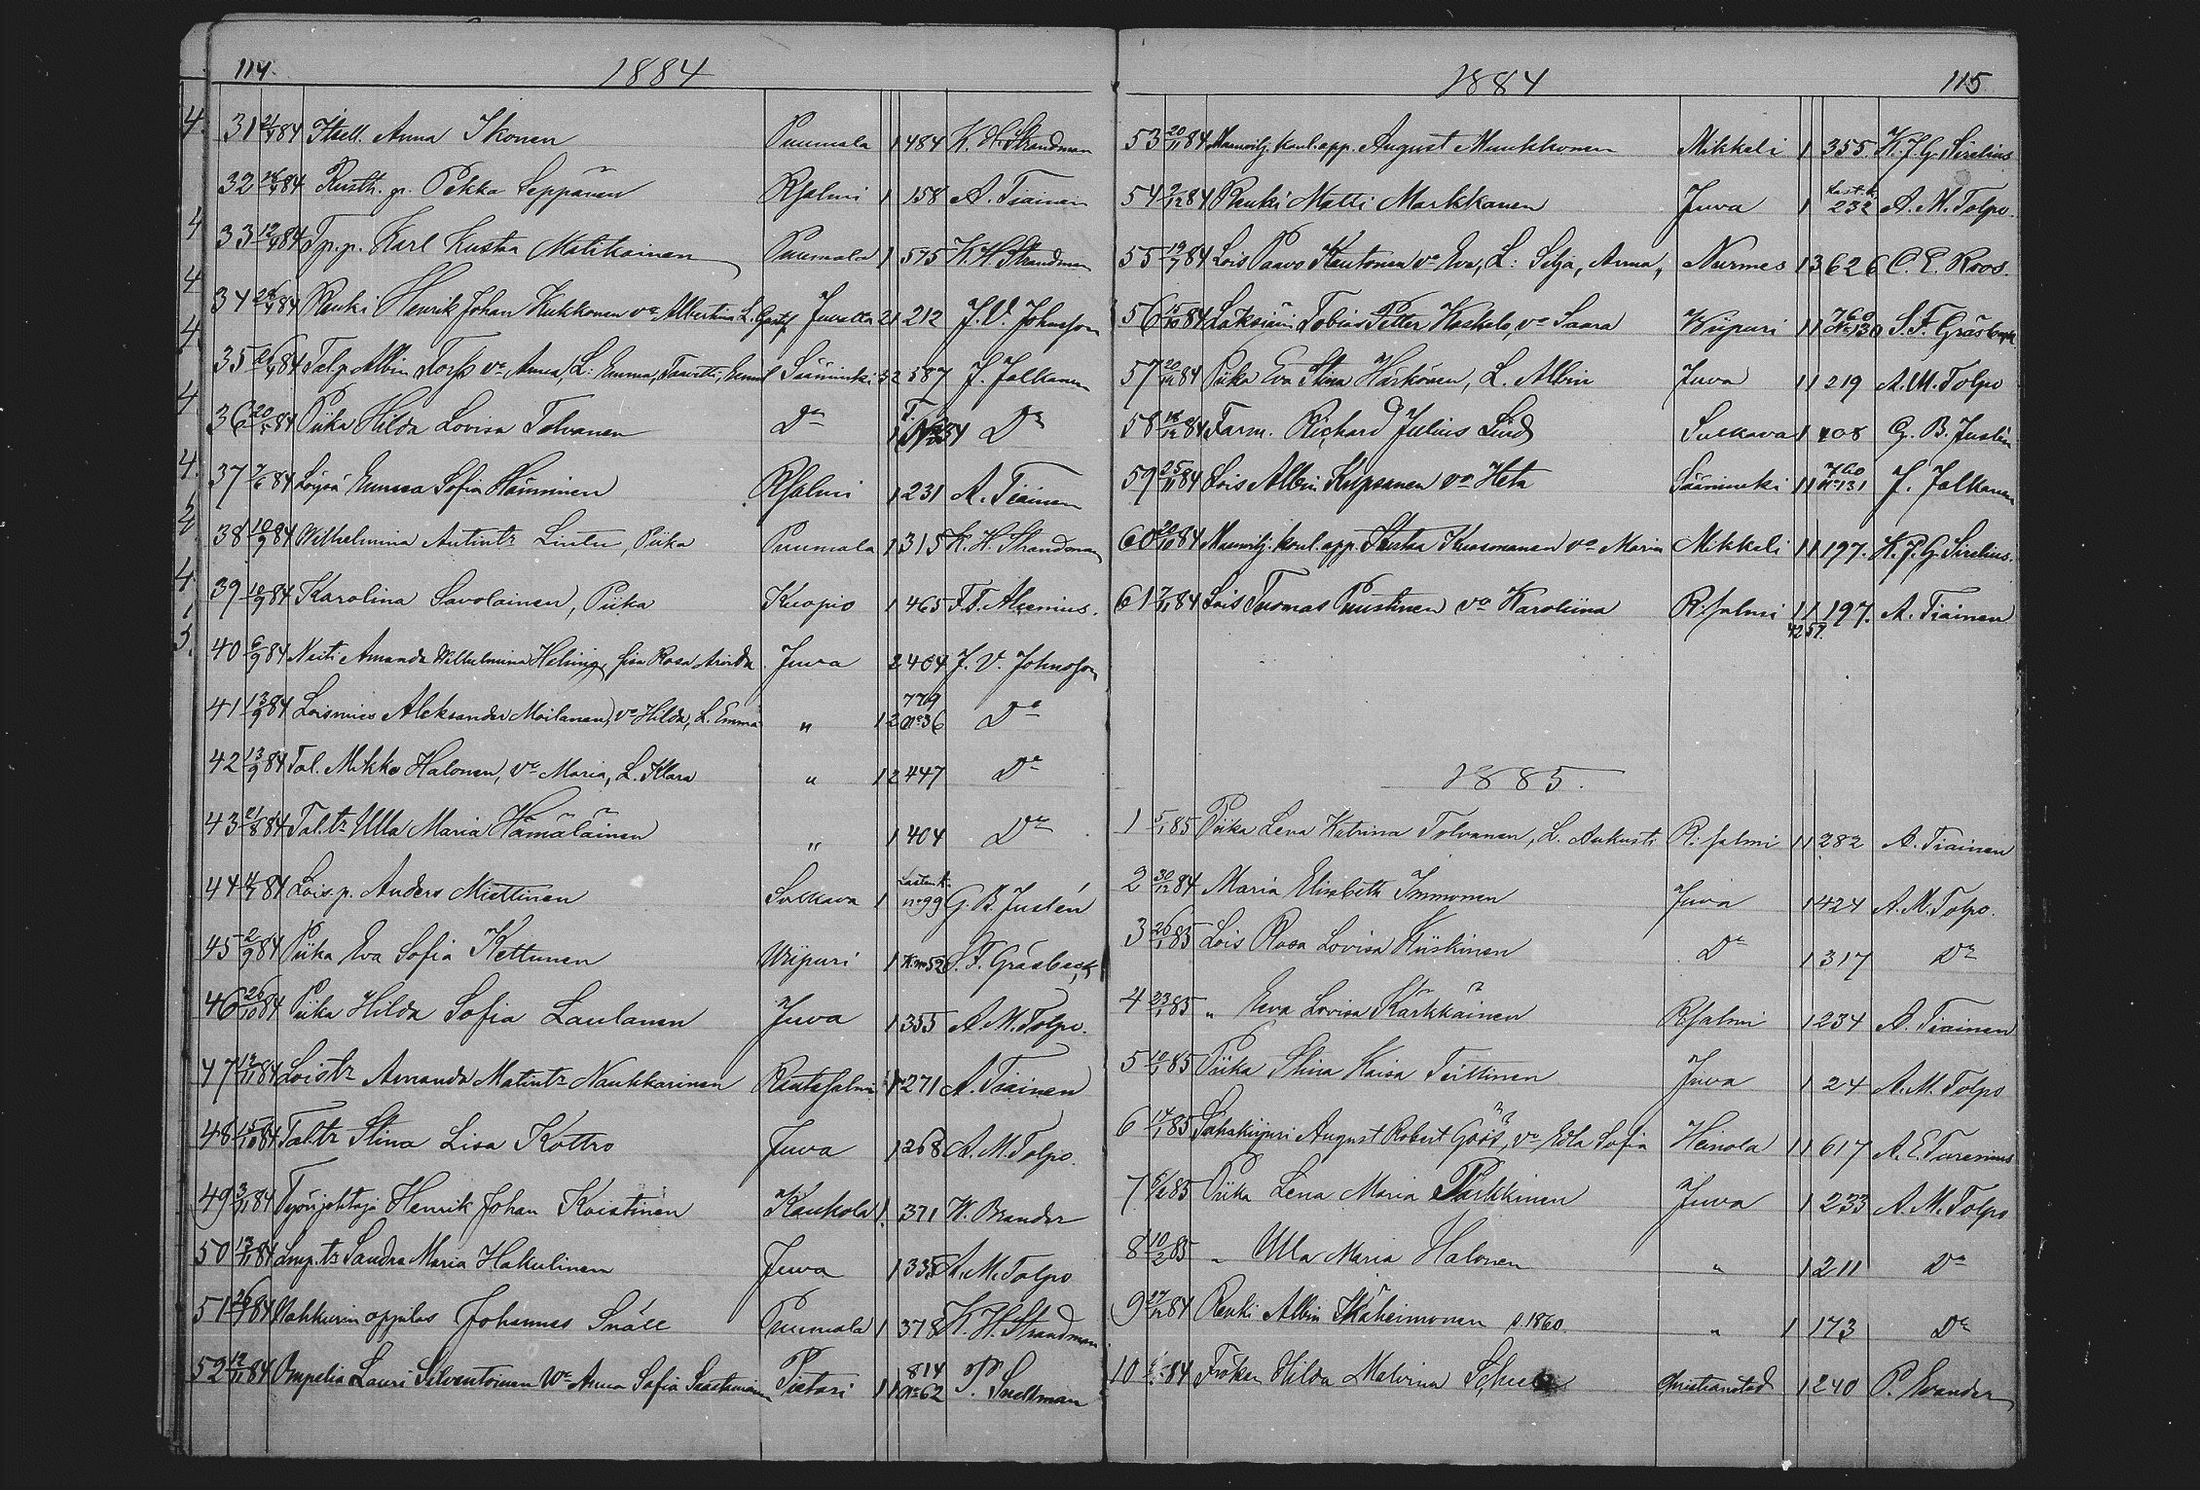 114. 1884
31 84 Itsell. Anna Ikonen Puumala 1 484 K. H. Strandman
32 84 Rusth. p. Pekka Leppänen R:salmi 1 158 A. Tiainen
33 12/4 84 Tp. p. Karl Kusta Matikainen Puumala 1 575 K. H. Strandman
34 84 Renki Henrik Johan Kukkonen va Albertina L. Juvalta 21 212 J. V. Johnsson
35 84 Tal.p. Albin Torss va Anna, L: Emma, Taavetti, Sääminki 32 587 J. Jalkanen
36 84 Piika Hilda Lovisa Tolvanen Do Do
37 84 Löysä Emma Sofia Hämminen R:salmi 1 231 A. Tiainen
38 10/9 84 Wilhelmina Antintr Lintu, Piika Puumala 1 315 K. H. Strandman
39 10/9 84 Karolina Savolainen, Piika Kuopio 1 465 F. F. Alcenius.
40 6/9 84 Neiti Amanda Wilhelmina Helsing, Rosa Juva 2 404 J. V. Johnsson
41 13/9 84 Loismies Aleksander Moilanen, va Hilda, L. Emma „ 12 779 No 36 Do
42 13/9 84 Tal. Mikko Halonen, va Maria, L. Klara „ 12 447 Do
43 21/8 84 Tal.tr Ulla Maria Hämäläinen „ 1 404 Do
44 84 Lois. p. Anders Miettinen Sulkava 1 Lasten k. no 99 G. B. Juslén
45 2/9 84 Piika Eva Sofia Kettunen Wiipuri 1 52 S. F. Gråsbeck
46 26/10 84 Piika Hilda Sofia Laulanen Juva 1 355 A. M. Tolpo.
47 12/11 84 Loistr Amanda Matintr Naukkarinen Rantasalmi 1 271 A. Tiainen
48 15/10 84 Tal.tr Stina Lisa Kottro Juva 1 268 A. M. Tolpo.
49 3/11 84 Työnjohtaja Henrik Johan Koistinen Kaukola 1 371 W. Brander
50 13/11 84 Lmp.tr Sandra Maria Hakulinen Juva 1 335 A. M. Tolpo
51 84 Nahkurin oppilas Johannes Snäll Puumala 1 378 K. H. Strandman
52 12/11 84 Ompelia Lauri Silventoinen Wo Anna Sofia Pietari 11 814 No 62 P. Sueltman
1884 115
53 20/11 84 Maanvilj. koul. opp. August Muukkonen Mikkeli 1 355 K. J. G. Sirelius
54 2/12 84 Renki Matti Markkanen Juva 1 Last. k. 232 A. M. Tolpo.
55 84 Lois Paavo Kautonen va Eva, L: Selja, Anna, Nurmes 13 626 C. E. Roos.
56 15/10 84 Läksiäin Tobias Petter Koskelo, va Saara Wiipuri 11 760 No 130 S. F. Gråsbeck
57 84 Piika Eva Stina Härkönen, L. Albin Juva 11 219 A. M. Tolpo
58 84 Farm. Richard Julius Lind Sulkava 1 408 G. B. Juslén
59 25/11 84 Lois Albin Kupsanen va Heta Sääminki 11 760 No 131 J. Jalkanen
60 20/10 84 Maanvilj. koul. opp. Kusta Kuosmanen va Maria Mikkeli 11 197. K. J. G. Sirelius.
61 7/11 84 Lois Tuomas Puustinen va Karoliina R:salmi 11 197. A. Tiainen
42 57.
1885.
1 5/1 85 Piika Lena Katrina Tolvanen, L. Aukusti R:salmi 11 282 A. Tiainen
2 30/12 84 Maria Elisabeth Immonen Juva 1 424 A. M. Tolpo.
3 26/1 85 Lois Rosa Lovisa Kiiskinen Do 1 317 Do
4 23/1 85 „ Eeva Lovisa Kärkkäinen R:salmi 1 234 A. Tiainen
5 10/1 85 Piika Stina Kaisa Teittinen Juva 1 24 A. M. Tolpo
6 17/1 85 Satulasepän August Robert Göös, va Edla Sofia Heinola 11 617 A. E. Turenius
7 6/2 85 Piika Lena Maria Parkkinen Juva 1 233 A. M. Tolpo
8 10/2 85 „ Ulla Maria Halonen „ 1 211 Do
9 27/12 84 Renki Albin Ikäheimonen s. 1860. „ 1 173 Do
10 84 Fröken Hilda Malvina Christianstad 1 240 P. Evander